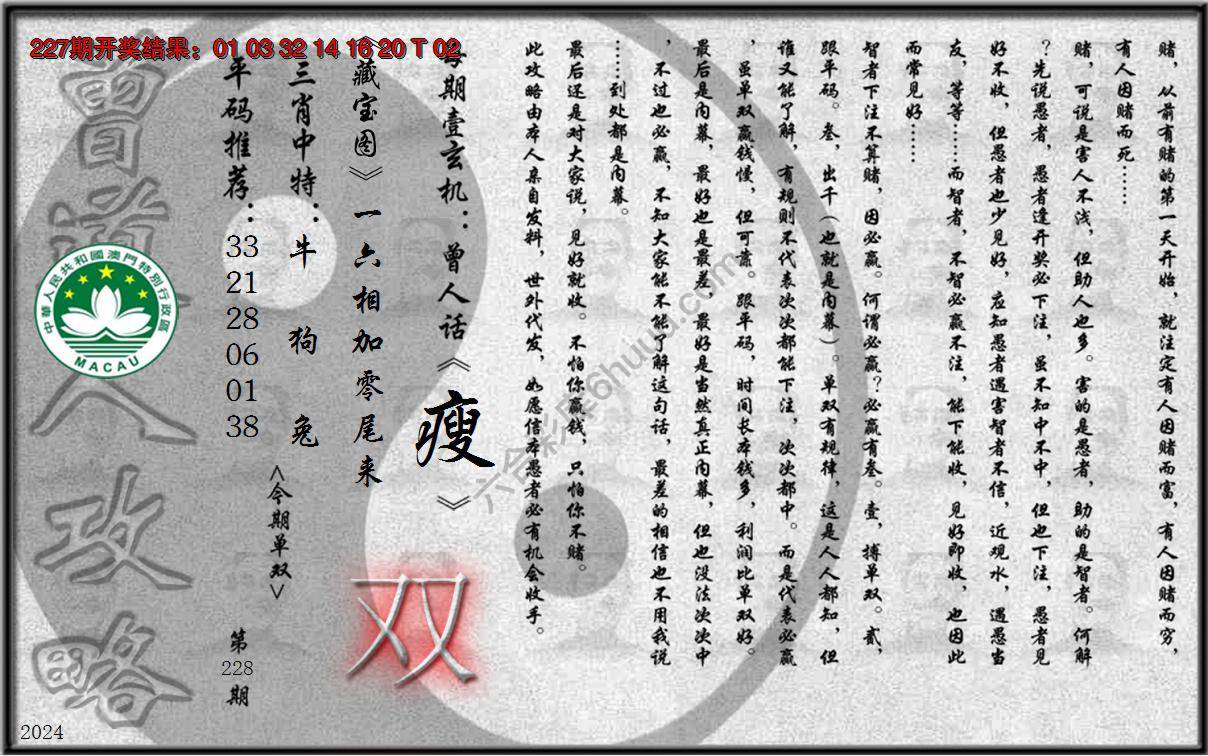 227期开奖结果：01 03 32 14 16 20 T 02
赌，从前有赌的第一天开始，就注定有人因赌而富，有人因赌而穷，
有人因赌而死……
赌，可说是害人不浅，但助人也多。害的是愚者，助的是智者。何解
？先说愚者，愚者逢开奖必下注，虽不知中不中，但也下注，愚者见
好不收，但愚者也少见好，应知愚者遇害智者不信，近观水，遇愚当
友，等等……而智者，不智必赢不注，能下能收，见好即收，也因此
而常见好……
智者下注不算赌，因必赢。何谓必赢？必赢有叁。壹，搏单双。贰，
跟平码。叁，出千（也就是内幕）。单双有规律，这是人人都知，但
谁又能了解，有规则不代表次次都能下注，次次都中。而是代表必赢
，虽单双赢钱慢，但可靠。跟平码，时间长本钱多，利润比单双好。
最后是内幕，最好也是最差，最好是当然真正内幕，但也没法次次中
，不过也必赢，不知大家能不能了解这句话，最差的相信也不用我说
……到处都是内幕。
最后还是对大家说，见好就收。不怕你赢钱，只怕你不赌。
此攻略由本人亲自发料，世外代发，如愿信本愚者必有机会收手。
每期壹玄机：曾人话《瘦》
《藏宝图》一六相加零尾来
三肖中特：牛 狗 兔
<今期单双>
双
平码推荐：33 21 28 06 01 38
第228期
曾道人攻略
中華人民共和國澳門特別行政區
MACAU
2024